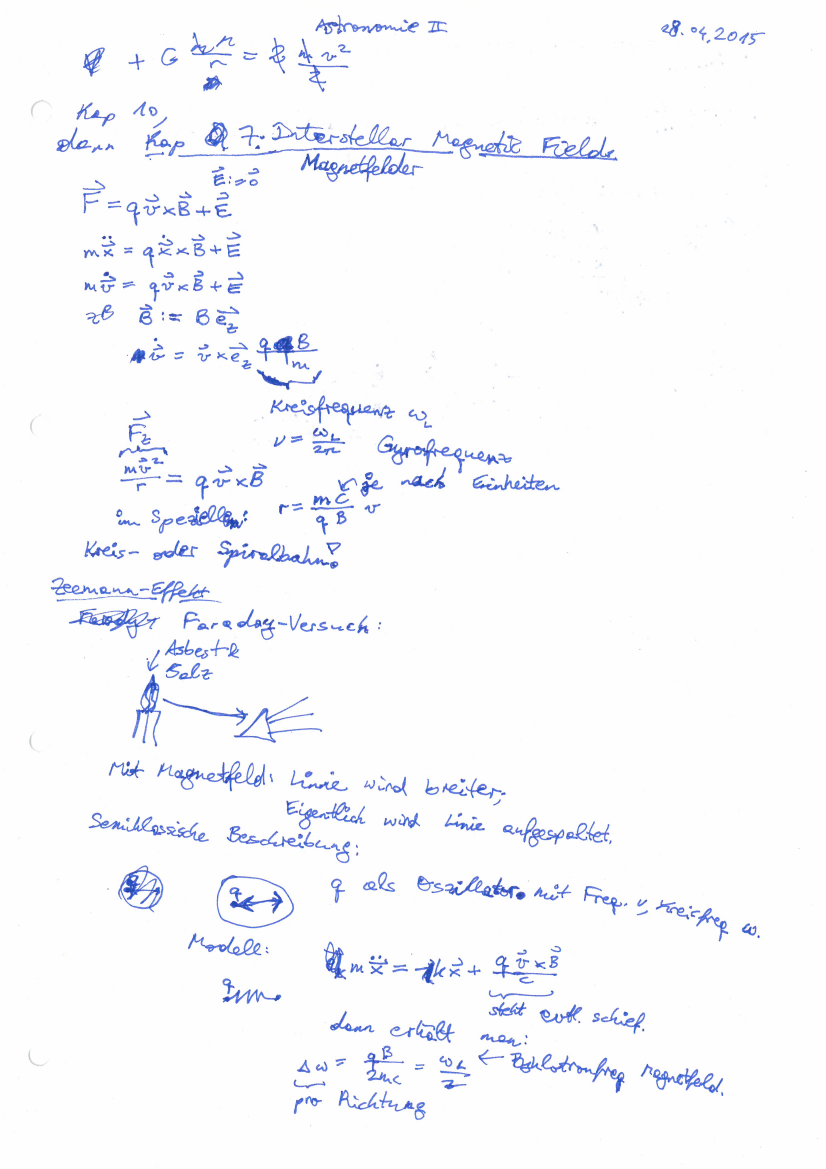 Astronomie II 28.04.2015
+ G m/r = v²/2
Kap 10,
dann Kap 7: Interstellar Magnetic Fields
Magnetfelder
E⃗:=0⃗
F⃗ = q v⃗ × B⃗ + E⃗
m ẍ⃗ = q ẋ⃗ × B⃗ + E⃗
m v̇⃗ = q v⃗ × B⃗ + E⃗
zB B⃗ := B e⃗_z
v̇⃗ = v⃗ × e⃗_z qB/m
Kreisfrequenz ω_L
F⃗_z ν = ω_L/2π Gyrofrequenz
m v⃗²/r = q v⃗ × B⃗ ↙ je nach Einheiten
im Speziellen: r = mc/qB v
Kreis- oder Spiralbahn!
Zeemann-Effekt
Faraday-Versuch:
Asbest &
Salz
Mit Magnetfeld: Linie wird breiter;
Eigentlich wird Linie aufgespaltet.
Semiklassische Beschreibung:
q q als Oszillator mit Freq. ν, Kreisfreq ω.
Modell: m ẍ⃗ = -k x⃗ + q v⃗ × B⃗/c
q steht evtl. schief.
dann erhält man:
Δω = qB/2mc = ω_L/2 ← Zyklotronfreq Magnetfeld.
pro Richtung